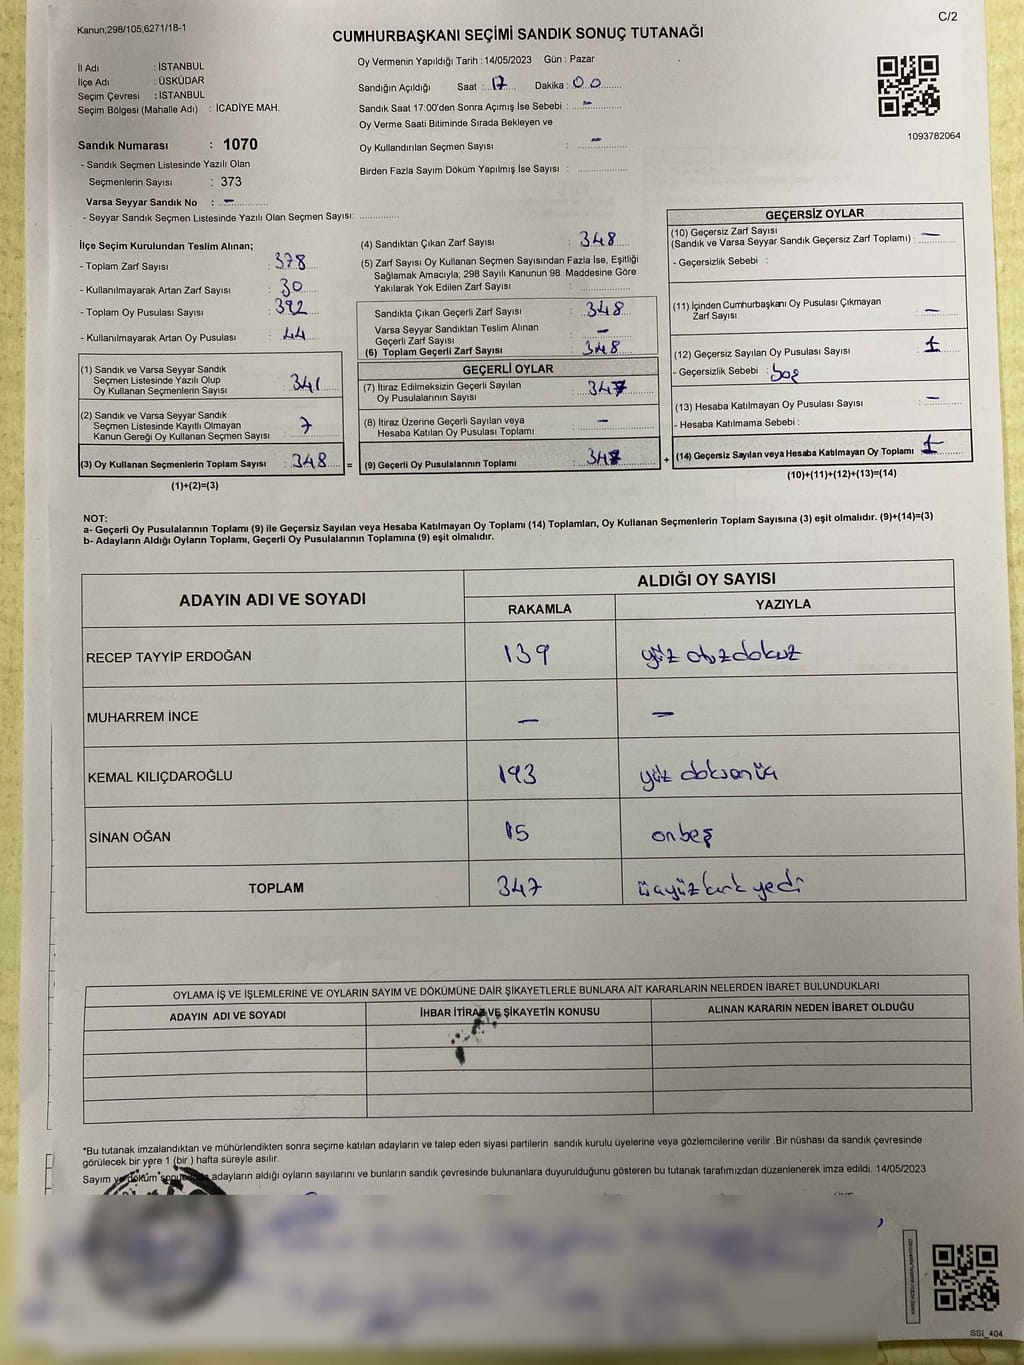 Kanun;298/105;6271/18-1
C/2
CUMHURBAŞKANI SEÇİMİ SANDIK SONUÇ TUTANAĞI
İl Adı : İSTANBUL
İlçe Adı : ÜSKÜDAR
Seçim Çevresi : İSTANBUL
Seçim Bölgesi (Mahalle Adı) : İCADİYE MAH.
Oy Vermenin Yapıldığı Tarih : 14/05/2023 Gün : Pazar
Sandığın Açıldığı Saat : 17 Dakika : 00
Sandık Saat 17:00'den Sonra Açımış İse Sebebi : -
Oy Verme Saati Bitiminde Sırada Bekleyen ve
Oy Kullandırılan Seçmen Sayısı : -
Birden Fazla Sayım Döküm Yapılmış İse Sayısı :
1093782064
Sandık Numarası : 1070
- Sandık Seçmen Listesinde Yazılı Olan
Seçmenlerin Sayısı : 373
Varsa Seyyar Sandık No : -
- Seyyar Sandık Seçmen Listesinde Yazılı Olan Seçmen Sayısı:
İlçe Seçim Kurulundan Teslim Alınan;
- Toplam Zarf Sayısı : 378
- Kullanılmayarak Artan Zarf Sayısı : 30
- Toplam Oy Pusulası Sayısı : 392
- Kullanılmayarak Artan Oy Pusulası : 44
(1) Sandık ve Varsa Seyyar Sandık
Seçmen Listesinde Yazılı Olup
Oy Kullanan Seçmenlerin Sayısı : 341
(2) Sandık ve Varsa Seyyar Sandık
Seçmen Listesinde Kayıtlı Olmayan
Kanun Gereği Oy Kullanan Seçmen Sayısı : 7
(3) Oy Kullanan Seçmenlerin Toplam Sayısı : 348
(1)+(2)=(3)
(4) Sandıktan Çıkan Zarf Sayısı : 348
(5) Zarf Sayısı Oy Kullanan Seçmen Sayısından Fazla İse, Eşitliği
Sağlamak Amacıyla; 298 Sayılı Kanunun 98. Maddesine Göre
Yakılarak Yok Edilen Zarf Sayısı :
Sandıkta Çıkan Geçerli Zarf Sayısı : 348
Varsa Seyyar Sandıktan Teslim Alınan
Geçerli Zarf Sayısı : -
(6) Toplam Geçerli Zarf Sayısı : 348
GEÇERLİ OYLAR
(7) İtiraz Edilmeksizin Geçerli Sayılan
Oy Pusulalarının Sayısı : 347
(8) İtiraz Üzerine Geçerli Sayılan veya
Hesaba Katılan Oy Pusulası Toplamı : -
(9) Geçerli Oy Pusulalarının Toplamı : 347
GEÇERSİZ OYLAR
(10) Geçersiz Zarf Sayısı
(Sandık ve Varsa Seyyar Sandık Geçersiz Zarf Toplamı) : -
- Geçersizlik Sebebi :
(11) İçinden Cumhurbaşkanı Oy Pusulası Çıkmayan
Zarf Sayısı : -
(12) Geçersiz Sayılan Oy Pusulası Sayısı : 1
- Geçersizlik Sebebi : boş
(13) Hesaba Katılmayan Oy Pusulası Sayısı : -
- Hesaba Katılmama Sebebi :
(14) Geçersiz Sayılan veya Hesaba Katılmayan Oy Toplamı : 1
(10)+(11)+(12)+(13)=(14)
NOT:
a- Geçerli Oy Pusulalarının Toplamı (9) ile Geçersiz Sayılan veya Hesaba Katılmayan Oy Toplamı (14) Toplamları, Oy Kullanan Seçmenlerin Toplam Sayısına (3) eşit olmalıdır. (9)+(14)=(3)
b- Adayların Aldığı Oyların Toplamı, Geçerli Oy Pusulalarının Toplamına (9) eşit olmalıdır.
ADAYIN ADI VE SOYADI
ALDIĞI OY SAYISI
RAKAMLA YAZIYLA
RECEP TAYYİP ERDOĞAN 139 yüz otuzdokuz
MUHARREM İNCE - -
KEMAL KILIÇDAROĞLU 193 yüz doksanüç
SİNAN OĞAN 15 onbeş
TOPLAM 347 üçyüzkırk yedi
OYLAMA İŞ VE İŞLEMLERİNE VE OYLARIN SAYIM VE DÖKÜMÜNE DAİR ŞİKAYETLERLE BUNLARA AİT KARARLARIN NELERDEN İBARET BULUNDUKLARI
ADAYIN ADI VE SOYADI İHBAR İTİRAZ VE ŞİKAYETİN KONUSU ALINAN KARARIN NEDEN İBARET OLDUĞU
*Bu tutanak imzalandıktan ve mühürlendikten sonra seçime katılan adayların ve talep eden siyasi partilerin sandık kurulu üyelerine veya gözlemcilerine verilir .Bir nüshası da sandık çevresinde
görülecek bir yere 1 (bir ) hafta süreyle asılır.
Sayım ve döküm adayların aldığı oyların sayılarını ve bunların sandık çevresinde bulunanlara duyurulduğunu gösteren bu tutanak tarafımızdan düzenlenerek imza edildi. 14/05/2023
SSI_404